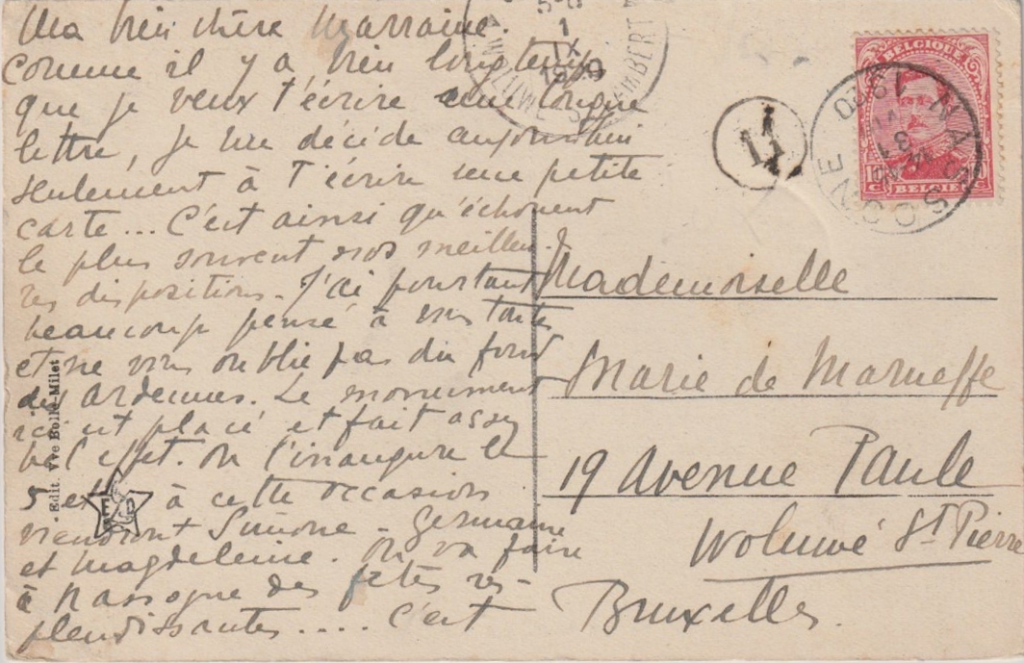 Ma bien chère Marraine.
Comme il y a bien longtemps
que je veux t'écrire une longue
lettre, je me décide aujourd'hui
seulement à t'écrire une petite
carte... C'est ainsi qu'échouent
le plus souvent nos meilleu-
res dispositions. J'ai pourtant
beaucoup pensé à vous toutes
et ne vous oublie pas du fond
des Ardennes. Le monument
ici est placé et fait assez
bel effet. On l'inaugure le
5 et à cette occasion
viendront Simone - Germaine
et Magdeleine. On va faire
à Nassogne des fêtes res-
plendissantes.... C'est
Edit. Vve Bolle-Milet
E D
5-6
1
IX
1920
WOLUWE ST LAMBERT
11
BELGIQUE
10 C
BELGIË
NASSOGNE
31
1920
Mademoiselle
Marie de Marneffe
19 Avenue Paule
Woluwé St Pierre
Bruxelles.